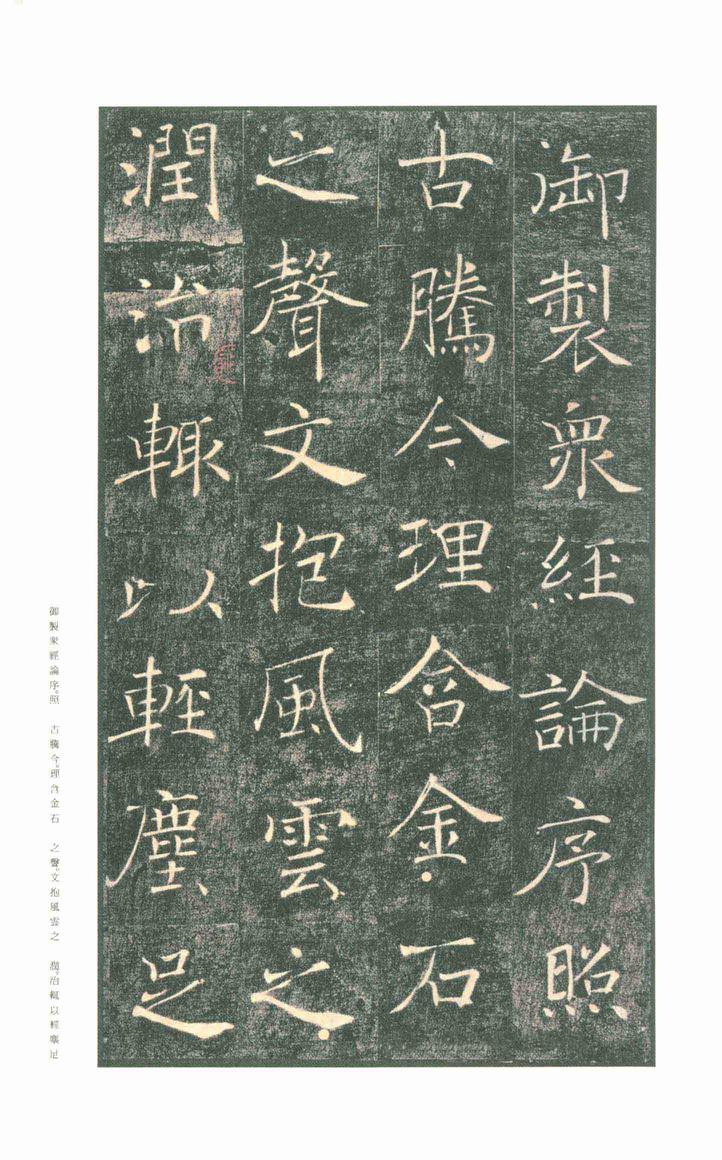 御製衆經論序照
古騰今理含金石
之聲文抱風雲之
潤治輒以輕塵足
御製衆經論序。照　古騰今。理含金石　之聲。文抱風雲之　潤。治輒以輕塵足